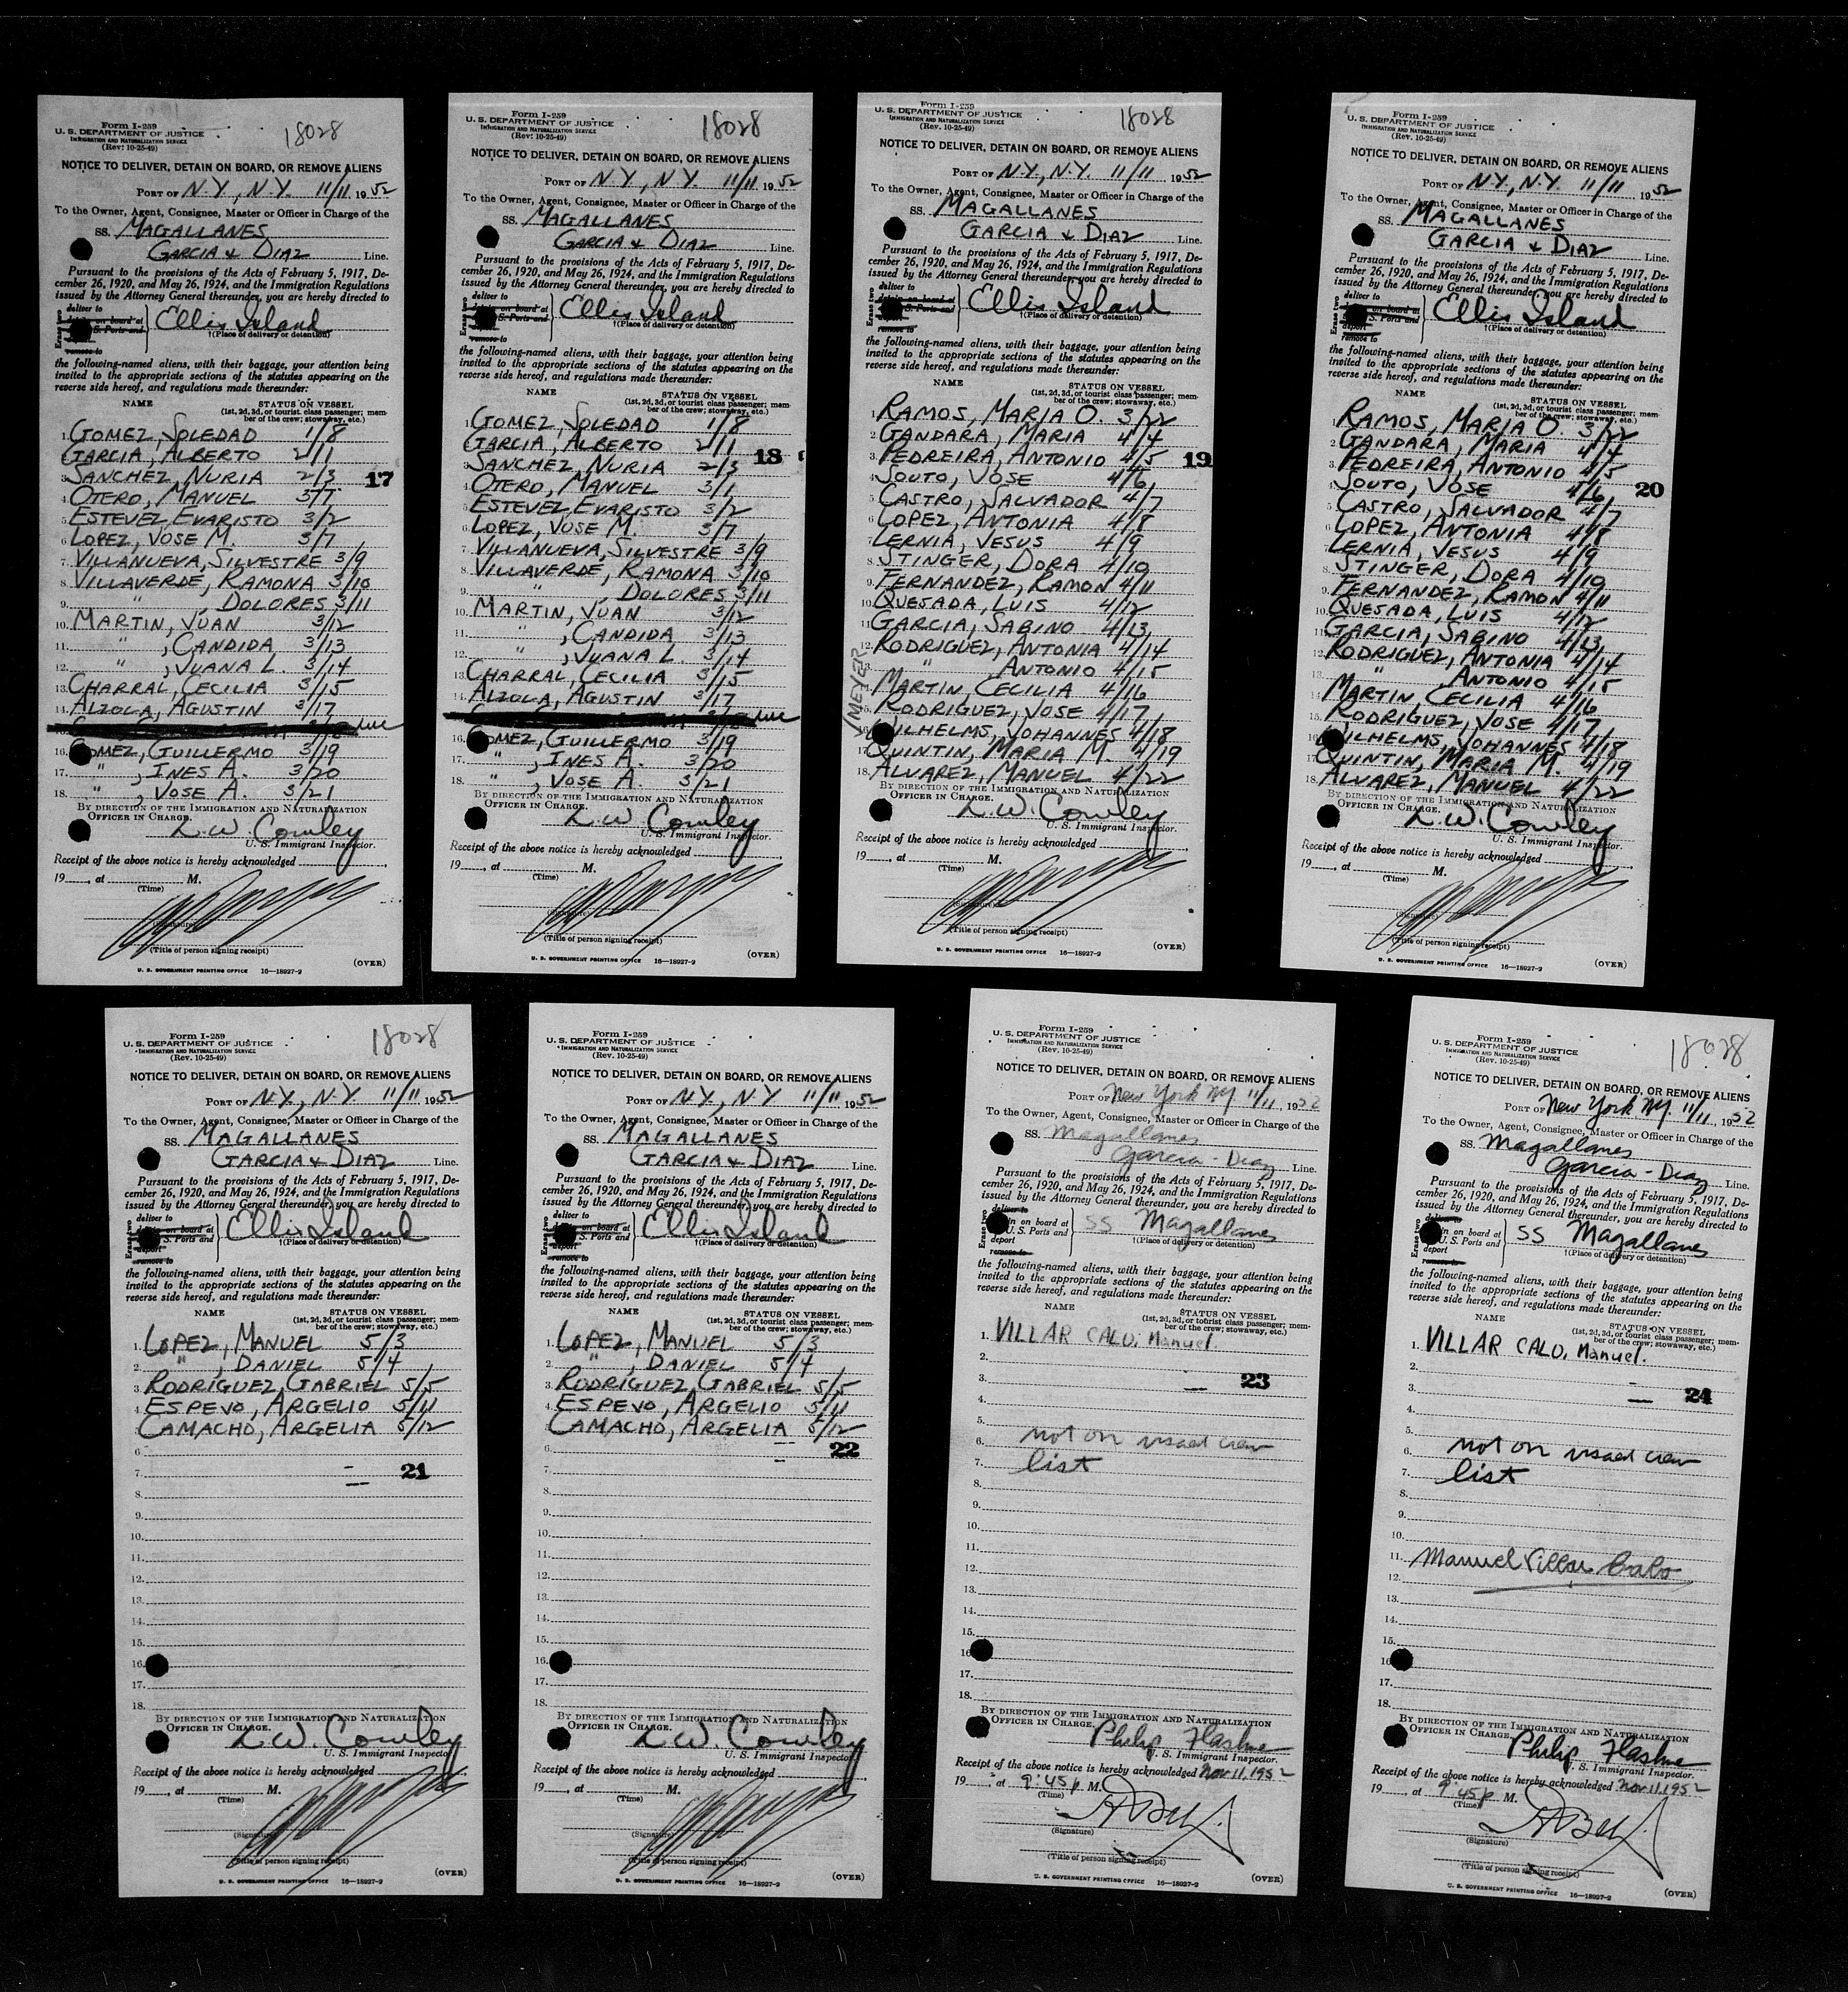 Form I-259
U. S. DEPARTMENT OF JUSTICE
IMMIGRATION AND NATURALIZATION SERVICE
(Rev. 10-25-49)
18028
NOTICE TO DELIVER, DETAIN ON BOARD, OR REMOVE ALIENS
PORT OF N.Y., N.Y. 11/11 1952
To the Owner, Agent, Consignee, Master or Officer in Charge of the
SS. MAGALLANES
GARCIA & DIAZ Line.
Pursuant to the provisions of the Acts of February 5, 1917, De-
cember 26, 1920, and May 26, 1924, and the Immigration Regulations
issued by the Attorney General thereunder, you are hereby directed to
Erase two
deliver to
on board at
S. Ports and
remove to
Ellis Island
†(Place of delivery or detention)
the following-named aliens, with their baggage, your attention being
invited to the appropriate sections of the statutes appearing on the
reverse side hereof, and regulations made thereunder:
NAME STATUS ON VESSEL
(1st, 2d, 3d, or tourist class passenger; mem-
ber of the crew; stowaway, etc.)
1. GOMEZ, SOLEDAD 1/8
GARCIA, ALBERTO 2/1
3. SANCHEZ, NURIA 2/3
17
4. OTERO, MANUEL 3/1
5. ESTEVEZ, EVARISTO 3/2
6. LOPEZ, VOSE M. 3/7
7. VILLANUEVA, SILVESTRE 3/9
8. VILLAVERDE, RAMONA 3/10
9. " , DOLORES 3/11
10. MARTIN, VUAN 3/12
11. " , CANDIDA 3/13
12. " , VUANA L. 3/14
13. CHARRAL, CECILIA 3/15
14. ALZOLA, AGUSTIN 3/17
16. GOMEZ, GUILLERMO 3/19
17. " , INES A. 3/20
18. " , VOSE A. 3/21
BY DIRECTION OF THE IMMIGRATION AND NATURALIZATION
OFFICER IN CHARGE.
L.W. Cowley
U. S. Immigrant Inspector.
Receipt of the above notice is hereby acknowledged
19 , at M.
(Time)
(Signature)
(Title of person signing receipt)
U. S. GOVERNMENT PRINTING OFFICE 16—18927-2
(OVER)
Form I-259
U. S. DEPARTMENT OF JUSTICE
IMMIGRATION AND NATURALIZATION SERVICE
(Rev. 10-25-49)
18028
NOTICE TO DELIVER, DETAIN ON BOARD, OR REMOVE ALIENS
PORT OF N.Y., N.Y. 11/11 1952
To the Owner, Agent, Consignee, Master or Officer in Charge of the
SS. MAGALLANES
GARCIA & DIAZ Line.
Pursuant to the provisions of the Acts of February 5, 1917, De-
cember 26, 1920, and May 26, 1924, and the Immigration Regulations
issued by the Attorney General thereunder, you are hereby directed to
Erase two
deliver to
on board at
S. Ports and
remove to
Ellis Island
†(Place of delivery or detention)
the following-named aliens, with their baggage, your attention being
invited to the appropriate sections of the statutes appearing on the
reverse side hereof, and regulations made thereunder:
NAME STATUS ON VESSEL
(1st, 2d, 3d, or tourist class passenger; mem-
ber of the crew; stowaway, etc.)
1. GOMEZ, SOLEDAD 1/8
GARCIA, ALBERTO 2/1
18
3. SANCHEZ, NURIA 2/3
4. OTERO, MANUEL 3/1
5. ESTEVEZ, EVARISTO 3/2
6. LOPEZ, VOSE M. 3/7
7. VILLANUEVA, SILVESTRE 3/9
8. VILLAVERDE, RAMONA 3/10
9. " , DOLORES 3/11
10. MARTIN, VUAN 3/12
11. " , CANDIDA 3/13
12. " , VUANA L. 3/14
13. CHARRAL, CECILIA 3/15
14. ALZOLA, AGUSTIN 3/17
16. GOMEZ, GUILLERMO 3/19
17. " , INES A. 3/20
18. " , VOSE A. 3/21
BY DIRECTION OF THE IMMIGRATION AND NATURALIZATION
OFFICER IN CHARGE.
L.W. Cowley
U. S. Immigrant Inspector.
Receipt of the above notice is hereby acknowledged
19 , at M.
(Time)
(Signature)
(Title of person signing receipt)
U. S. GOVERNMENT PRINTING OFFICE 16—18927-2
(OVER)
Form I-259
U. S. DEPARTMENT OF JUSTICE
IMMIGRATION AND NATURALIZATION SERVICE
(Rev. 10-25-49)
18028
NOTICE TO DELIVER, DETAIN ON BOARD, OR REMOVE ALIENS
PORT OF N.Y., N.Y. 11/11 1952
To the Owner, Agent, Consignee, Master or Officer in Charge of the
SS. MAGALLANES
GARCIA & DIAZ Line.
Pursuant to the provisions of the Acts of February 5, 1917, De-
cember 26, 1920, and May 26, 1924, and the Immigration Regulations
issued by the Attorney General thereunder, you are hereby directed to
Erase two
deliver to
detain on board at
S. Ports and
remove to
Ellis Island
†(Place of delivery or detention)
the following-named aliens, with their baggage, your attention being
invited to the appropriate sections of the statutes appearing on the
reverse side hereof, and regulations made thereunder:
NAME STATUS ON VESSEL
(1st, 2d, 3d, or tourist class passenger; mem-
ber of the crew; stowaway, etc.)
1. RAMOS, MARIA O. 3/22
2. GANDARA, MARIA 4/4
3. PEDREIRA, ANTONIO 4/5
19
4. SOUTO, VOSE 4/6
5. CASTRO, SALVADOR 4/7
6. LOPEZ, ANTONIA 4/8
7. LERNIA, VESUS 4/9
8. STINGER, DORA 4/10
9. FERNANDEZ, RAMON 4/11
10. QUESADA, LUIS 4/12
11. GARCIA, SABINO 4/13
12. RODRIGUEZ, ANTONIA 4/14
13. " ANTONIO 4/15
14. MARTIN, CECILIA 4/16
15. RODRIGUEZ, VOSE 4/17
MEYER
16. WILHELMS, VOHANNES 4/18
17. QUINTIN, MARIA M. 4/19
18. ALVAREZ, MANUEL 4/22
BY DIRECTION OF THE IMMIGRATION AND NATURALIZATION
OFFICER IN CHARGE.
L.W. Cowley
U. S. Immigrant Inspector.
Receipt of the above notice is hereby acknowledged
19 , at M.
(Time)
(Signature)
(Title of person signing receipt)
U. S. GOVERNMENT PRINTING OFFICE 16—18927-2
(OVER)
Form I-259
U. S. DEPARTMENT OF JUSTICE
IMMIGRATION AND NATURALIZATION SERVICE
(Rev. 10-25-49)
NOTICE TO DELIVER, DETAIN ON BOARD, OR REMOVE ALIENS
PORT OF N.Y., N.Y. 11/11 1952
To the Owner, Agent, Consignee, Master or Officer in Charge of the
SS. MAGALLANES
GARCIA & DIAZ Line.
Pursuant to the provisions of the Acts of February 5, 1917, De-
cember 26, 1920, and May 26, 1924, and the Immigration Regulations
issued by the Attorney General thereunder, you are hereby directed to
Erase two
deliver to
on board at
S. Ports and
deport
remove to
Ellis Island
†(Place of delivery or detention)
the following-named aliens, with their baggage, your attention being
invited to the appropriate sections of the statutes appearing on the
reverse side hereof, and regulations made thereunder:
NAME STATUS ON VESSEL
(1st, 2d, 3d, or tourist class passenger; mem-
ber of the crew; stowaway, etc.)
1. RAMOS, MARIA O. 3/22
2. GANDARA, MARIA 4/4
3. PEDREIRA, ANTONIO 4/5
4. SOUTO, VOSE 4/6
20
5. CASTRO, SALVADOR 4/7
6. LOPEZ, ANTONIA 4/8
7. LERNIA, VESUS 4/9
8. STINGER, DORA 4/10
9. FERNANDEZ, RAMON 4/11
10. QUESADA, LUIS 4/12
11. GARCIA, SABINO 4/13
12. RODRIGUEZ, ANTONIA 4/14
13. " ANTONIO 4/15
14. MARTIN, CECILIA 4/16
15. RODRIGUEZ, VOSE 4/17
16. WILHELMS, VOHANNES 4/18
17. QUINTIN, MARIA M. 4/19
18. ALVAREZ, MANUEL 4/22
BY DIRECTION OF THE IMMIGRATION AND NATURALIZATION
OFFICER IN CHARGE.
L.W. Cowley
U. S. Immigrant Inspector.
Receipt of the above notice is hereby acknowledged
19 , at M.
(Time)
(Signature)
(Title of person signing receipt)
U. S. GOVERNMENT PRINTING OFFICE 16—18927-2
(OVER)
Form I-259
U. S. DEPARTMENT OF JUSTICE
IMMIGRATION AND NATURALIZATION SERVICE
(Rev. 10-25-49)
18028
NOTICE TO DELIVER, DETAIN ON BOARD, OR REMOVE ALIENS
PORT OF N.Y., N.Y 11/11 1952
To the Owner, Agent, Consignee, Master or Officer in Charge of the
SS. MAGALLANES
GARCIA & DIAZ Line.
Pursuant to the provisions of the Acts of February 5, 1917, De-
cember 26, 1920, and May 26, 1924, and the Immigration Regulations
issued by the Attorney General thereunder, you are hereby directed to
Erase two
deliver to
detain on board at
S. Ports and
deport
remove to
Ellis Island
†(Place of delivery or detention)
the following-named aliens, with their baggage, your attention being
invited to the appropriate sections of the statutes appearing on the
reverse side hereof, and regulations made thereunder:
NAME STATUS ON VESSEL
(1st, 2d, 3d, or tourist class passenger; mem-
ber of the crew; stowaway, etc.)
1. LOPEZ, MANUEL 5/3
2. " , DANIEL 5/4
3. RODRIGUEZ, GABRIEL 5/5
4. ESPEVO, ARGELIO 5/11
CAMACHO, ARGELIA 5/12
6.
7. 21
8.
9.
10.
11.
12.
13.
14.
15.
16.
17.
18.
BY DIRECTION OF THE IMMIGRATION AND NATURALIZATION
OFFICER IN CHARGE.
L.W. Cowley
U. S. Immigrant Inspector
Receipt of the above notice is hereby acknowledged
19 , at M.
(Time)
(Signature)
(Title of person signing receipt)
U. S. GOVERNMENT PRINTING OFFICE 16—18927-2
(OVER)
Form I-259
U. S. DEPARTMENT OF JUSTICE
IMMIGRATION AND NATURALIZATION SERVICE
(Rev. 10-25-49)
NOTICE TO DELIVER, DETAIN ON BOARD, OR REMOVE ALIENS
PORT OF N.Y., N.Y 11/11 1952
To the Owner, Agent, Consignee, Master or Officer in Charge of the
SS. MAGALLANES
GARCIA & DIAZ Line.
Pursuant to the provisions of the Acts of February 5, 1917, De-
cember 26, 1920, and May 26, 1924, and the Immigration Regulations
issued by the Attorney General thereunder, you are hereby directed to
Erase two
deliver to
on board at
S. Ports and
deport
remove to
Ellis Island
†(Place of delivery or detention)
the following-named aliens, with their baggage, your attention being
invited to the appropriate sections of the statutes appearing on the
reverse side hereof, and regulations made thereunder:
NAME STATUS ON VESSEL
(1st, 2d, 3d, or tourist class passenger; mem-
ber of the crew; stowaway, etc.)
1. LOPEZ, MANUEL 5/3
2. " , DANIEL 5/4
3. RODRIGUEZ, GABRIEL 5/5
4. ESPEVO, ARGELIO 5/11
CAMACHO, ARGELIA 5/12
6. 22
7.
8.
9.
10.
11.
12.
13.
14.
15.
16.
17.
18.
BY DIRECTION OF THE IMMIGRATION AND NATURALIZATION
OFFICER IN CHARGE.
L.W. Cowley
U. S. Immigrant Inspector
Receipt of the above notice is hereby acknowledged
19 , at M.
(Time)
(Signature)
(Title of person signing receipt)
U. S. GOVERNMENT PRINTING OFFICE 16—18927-2
(OVER)
Form I-259
U. S. DEPARTMENT OF JUSTICE
IMMIGRATION AND NATURALIZATION SERVICE
(Rev. 10-25-49)
NOTICE TO DELIVER, DETAIN ON BOARD, OR REMOVE ALIENS
PORT OF New York NY 11/11, 1952
To the Owner, Agent, Consignee, Master or Officer in Charge of the
SS. Magallanes
Garcia - Diaz Line.
Pursuant to the provisions of the Acts of February 5, 1917, De-
cember 26, 1920, and May 26, 1924, and the Immigration Regulations
issued by the Attorney General thereunder, you are hereby directed to
Erase two
deliver to
in on board at
U. S. Ports and
deport
remove to
SS Magallanes
†(Place of delivery or detention)
the following-named aliens, with their baggage, your attention being
invited to the appropriate sections of the statutes appearing on the
reverse side hereof, and regulations made thereunder:
NAME STATUS ON VESSEL
(1st, 2d, 3d, or tourist class passenger; mem-
ber of the crew; stowaway, etc.)
1. VILLAR CALO, Manuel.
2.
3. 23
4.
5.
6. not on visaed crew
7. list
8.
9.
10.
11.
12.
13.
14.
15.
16
17.
18.
BY DIRECTION OF THE IMMIGRATION AND NATURALIZATION
OFFICER IN CHARGE.
Philip
U. S. Immigrant Inspector.
Receipt of the above notice is hereby acknowledged Nov 11, 1952
19 , at 9:45 p M.
(Time)
(Signature)
(Title of person signing receipt)
U. S. GOVERNMENT PRINTING OFFICE 16—18927-2
(OVER)
Form I-259
U. S. DEPARTMENT OF JUSTICE
IMMIGRATION AND NATURALIZATION SERVICE
(Rev. 10-25-49)
18028
NOTICE TO DELIVER, DETAIN ON BOARD, OR REMOVE ALIENS
PORT OF New York NY. 11/11, 1952
To the Owner, Agent, Consignee, Master or Officer in Charge of the
SS. Magallanes
Garcia - Diaz Line.
Pursuant to the provisions of the Acts of February 5, 1917, De-
cember 26, 1920, and May 26, 1924, and the Immigration Regulations
issued by the Attorney General thereunder, you are hereby directed to
Erase two
deliver to
in on board at
U. S. Ports and
deport
remove to
SS Magallanes
†(Place of delivery or detention)
the following-named aliens, with their baggage, your attention being
invited to the appropriate sections of the statutes appearing on the
reverse side hereof, and regulations made thereunder:
NAME STATUS ON VESSEL
(1st, 2d, 3d, or tourist class passenger; mem-
ber of the crew; stowaway, etc.)
1. VILLAR CALO, Manuel.
2.
3. 24
4.
5.
6. not on visaed crew
7. list
8.
9.
10.
11. Manuel Villar Calo
12.
13.
15.
16
17.
18.
BY DIRECTION OF THE IMMIGRATION AND NATURALIZATION
OFFICER IN CHARGE.
Philip
U. S. Immigrant Inspector.
Receipt of the above notice is hereby acknowledged Nov 11, 1952
19 , at 9:45 p M.
(Time)
(Signature)
(Title of person signing receipt)
U. S. GOVERNMENT PRINTING OFFICE 16—18927-2
(OVER)